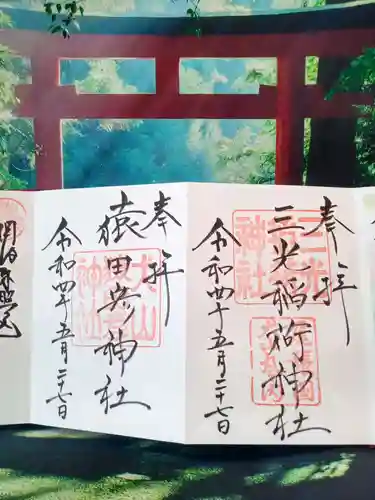 奉拝
三光稲荷神社
三光
神社
令和四年五月二十七日
奉拝
猿田彦神社
犬山
神社
令和四年五月二十七日